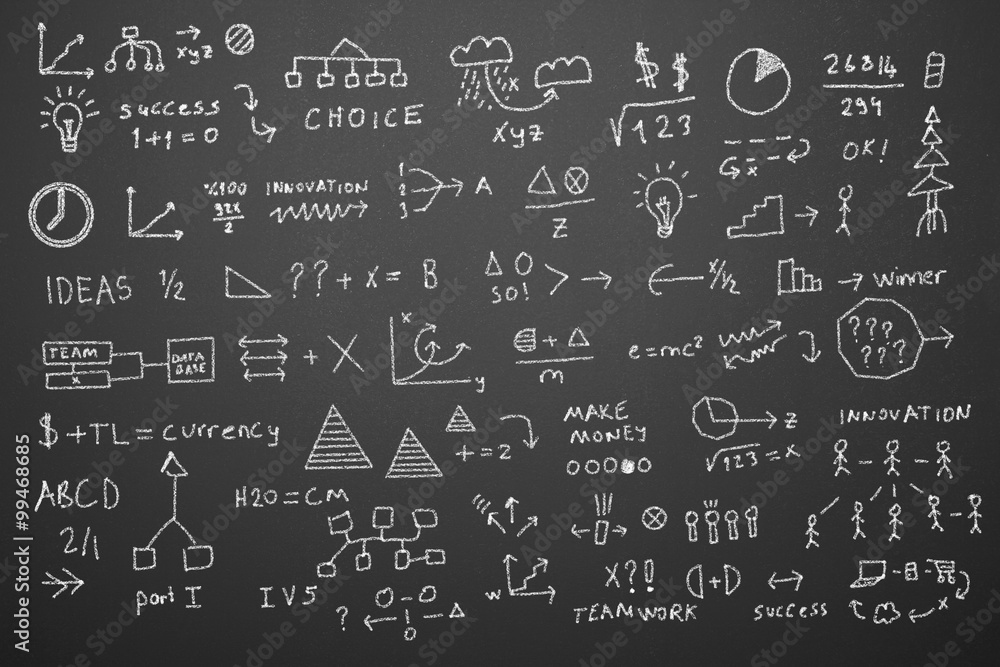 xyz
success
1+1=0
CHOICE
x
xyz
$ $
√123
26814
294
OK!
x
%100
92x
2
INNOVATION
1
2
3
A
z
IDEAS 1/2
??+x=B
SO!
x/1/2
winner
TEAM
x
DATA
BASE
+ X
x
y
+
m
e=mc²
???
???
$+TL=currency
+=2
MAKE
MONEY
z
√123=x
INNOVATION
ABCD
2/1
part I
H2O=CM
IV5
?
w
X?!
TEAMWORK
+
success
x
Adobe Stock | #99468685